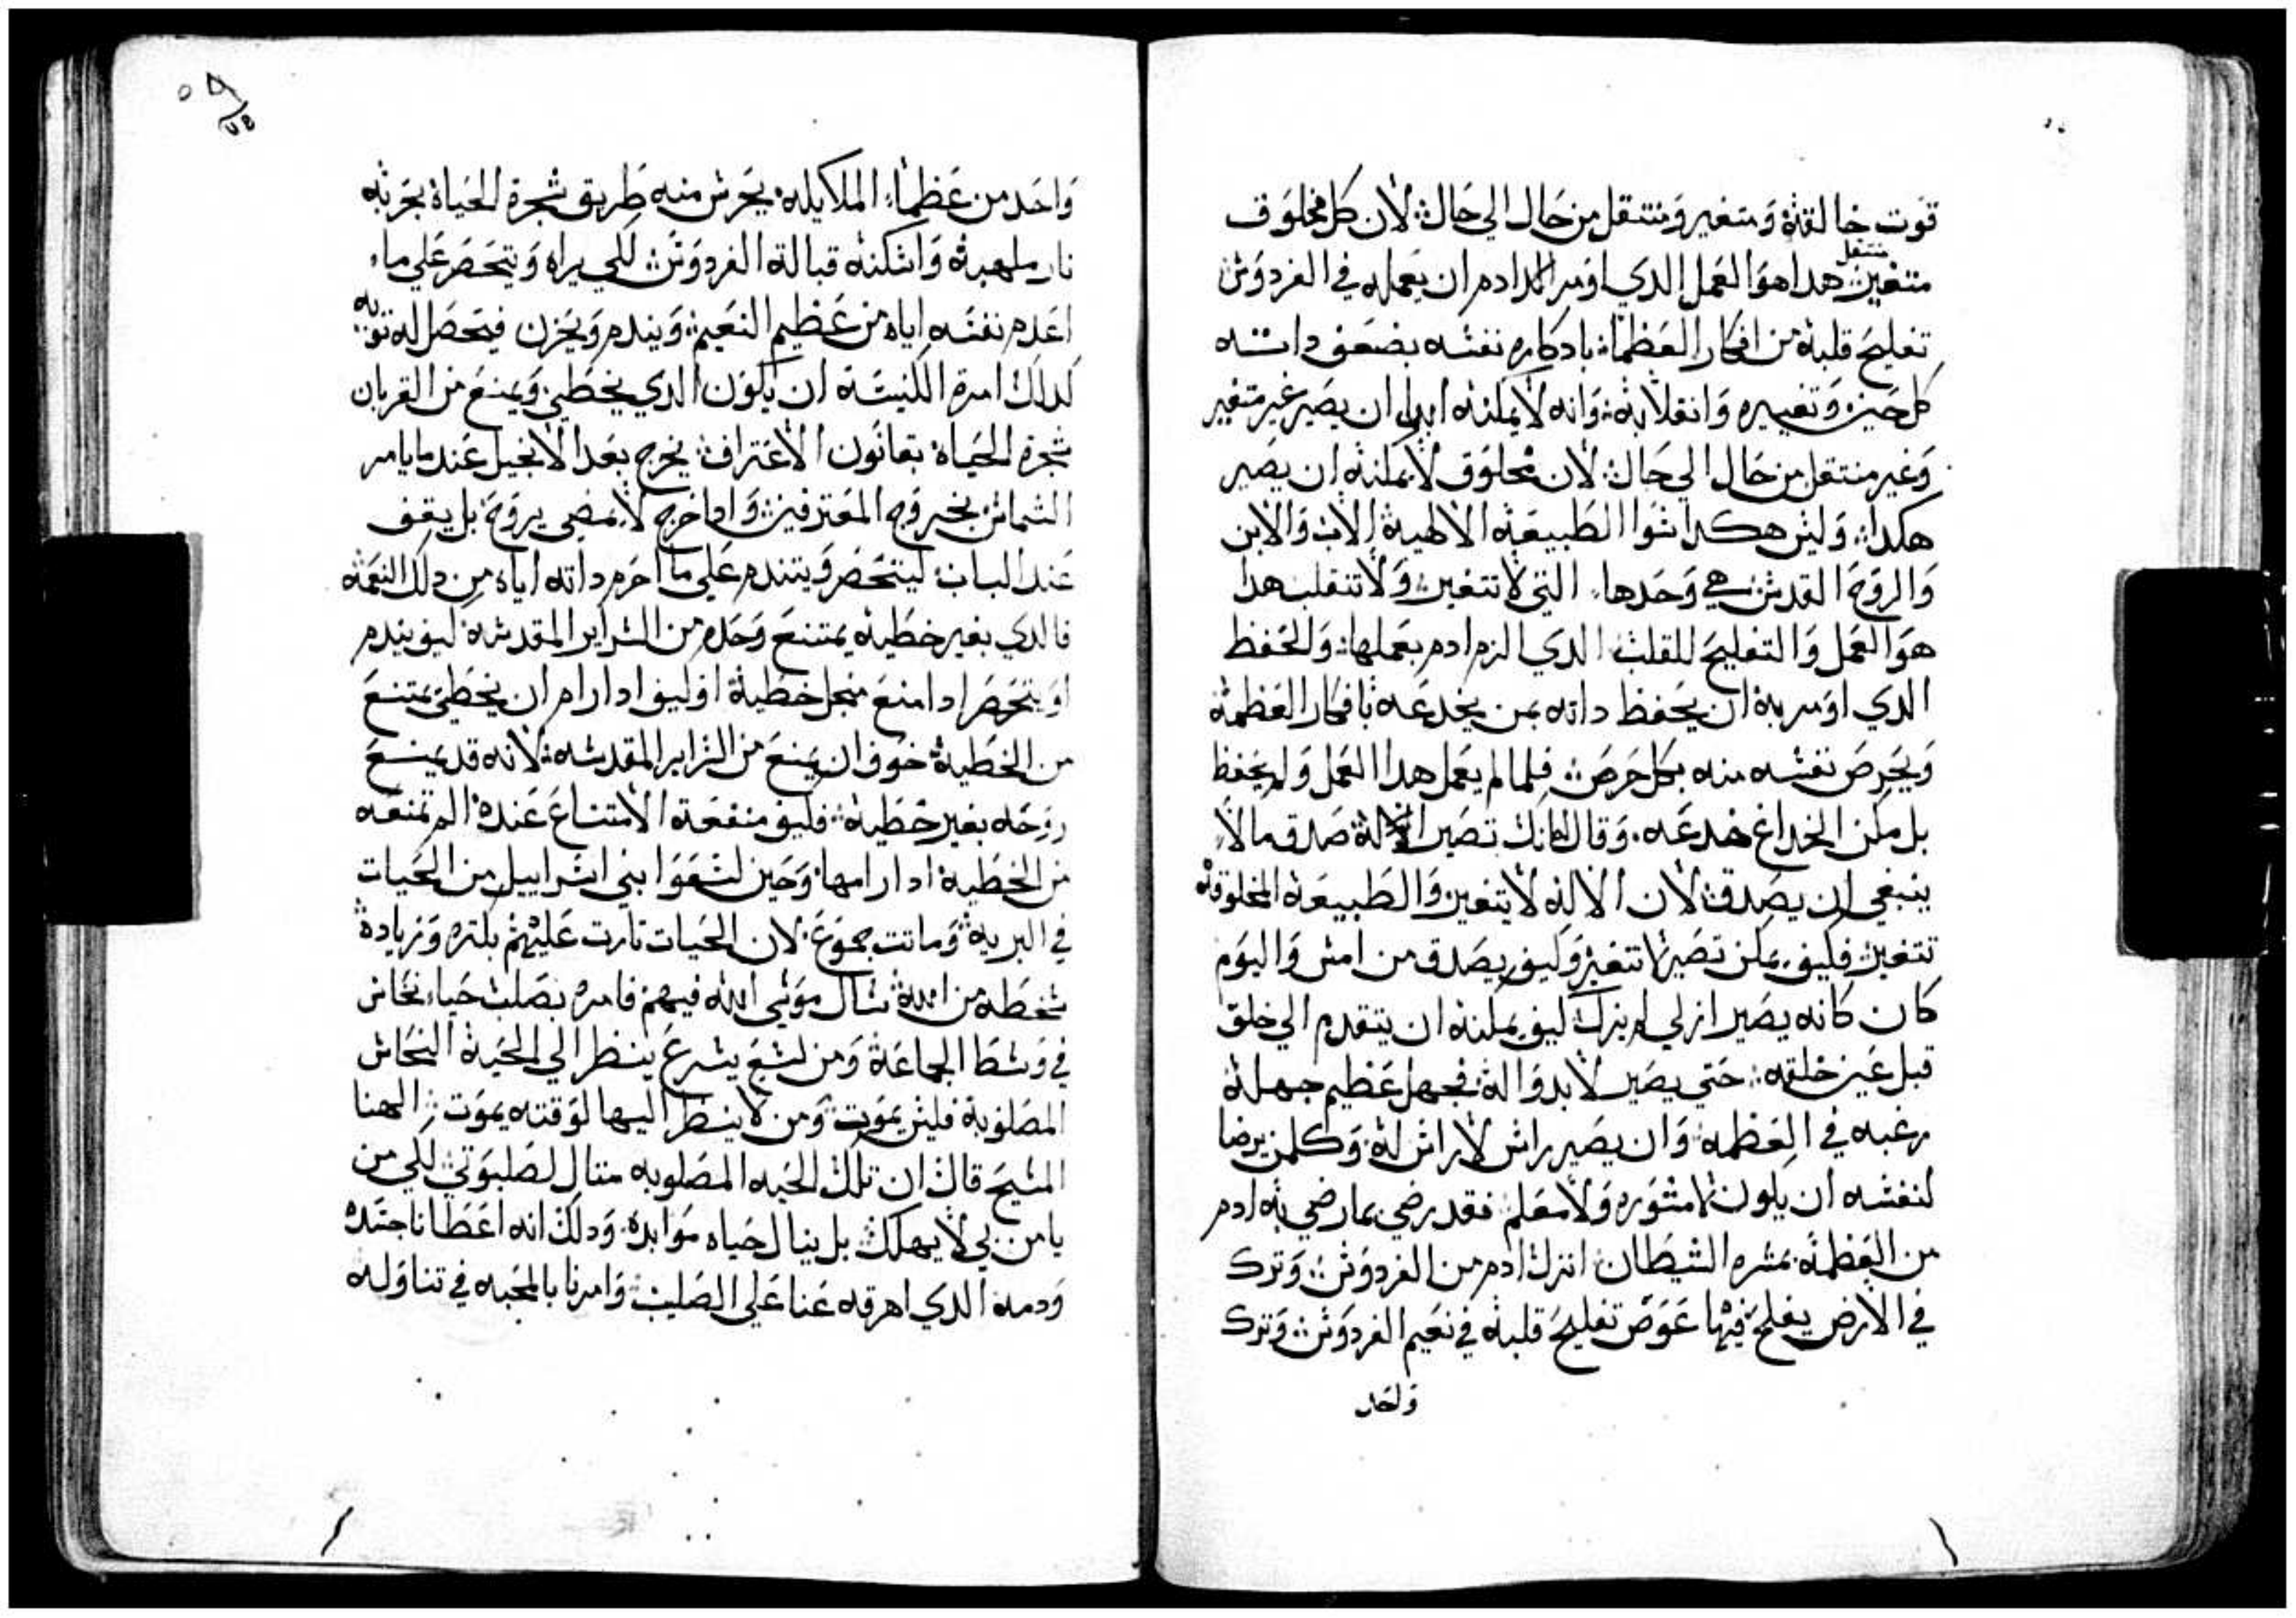 قوت خالقته ومتغير ومنتقل من حال الي حال لان كل مخلوق
منتقل
متغير هدا هو العمل الدي اومر ادم ان يعمله في الفردوس
تفليح قلبه من افكار العظمه بادكاره نفسه بضعف داته
كل حين وتغييره وانقلابه وانه لا يمكنه ابدا ان يصير غير متغير
وغير منتقل من حال الي حال لان مخلوق لا يمكنه ان يصير
هكدا وليس هكدا سوا الطبيعه الالهيه الاب والابن
والروح القدس هي وحدها التي لا تتغير ولا تنقلب هدا
هو العمل والتفليح للقلب الدي الزم ادم بعملها والحفظ
الدي اومر به ان يحفظ داته بمن يخدعه بافكار العظمه
ويحرص نفسه منه بكل حرص فلما لم يعمل هدا العمل ولم يحفظ
بل مكن الخداع خدعه وقال له انك تصير الاه صدق ما لا
ينبغي ان يصدق لان الاله لا يتغير والطبيعه المخلوقه
تتغير فكيف يمكن تصير لا تتغير وكيف يصدق من امس واليوم
كان كانه يصير ازلي لم يزل كيف يمكنه ان يتقدم الي خلق
قبل عين خلقه حتي يصير لا بدو اله فجهل عظيم جهله
رغبه في العظمه وان يصير راس لا راس له وكلمن يرضا
لنفسه ان يكون لا مشوره ولا معلم فقد رضي بما رضي به ادم
من العظمه بمشره الشيطان انزل ادم من الفردوس وترك
في الارض يفلح فيها عوض تفليح قلبه في نعيم الفردوس وترك
واحد
واحد من عظماء الملايكه يحرس منه طريق شجرة الحياة بحربة
نار ملهبة واسكنه قبالة الفردوس لكي يراه ويتحصر علي ما
اعدم نفسه اياه من عظيم النعيم ويندم ويحزن فيحصل له توبه
كدلك امرة الكنيسة ان يكون الدي يخطي ويمنع من القربان
شجرة الحياة بقانون الاعتراف يخرج بعد الانجيل عند ما يامر
الشماس بخروج المعترفين وادا خرج لا يمضي يروح بل يقف
عند الباب ليتحصر ويتندم علي ما احرم داته اياه من دلك النعمه
فالدي بغير خطيه يمتنع وحده من السراير المقدسه كيف يندم
او يتحصر ادا منع منجل خطية او كيف ادا رام ان يخطي يمتنع
من الخطية خوف ان يمنع من السراير المقدسه لانه قد يمنع
روحه بغير خطية فكيف منفعة الامتناع عنده الم تمنعه
من الخطية ادا رامها وحين لسعوا بني اسراييل من الحيات
في البرية وماتت جموع لان الحيات تارت عليهم بكتره وزيادة
سخطه من الله سال موسي الله فيهم فامره بصلب حياه نحاس
في وسط الجماعة ومن لسع يسرع ينظر الي الحية النحاس
المصلوبة فليس يموت ومن لا ينظر اليها لوقته يموت الهنا
المسيح قال ان تلك الحيه المصلوبه متال لصلبوتي لكي من
يامن بي لا يهلك بل ينال حياه موابده ودلك انه اعطانا جسده
ودمه الدي اهرقه عنا علي الصليب وامرنا بالمحبه في تناوله